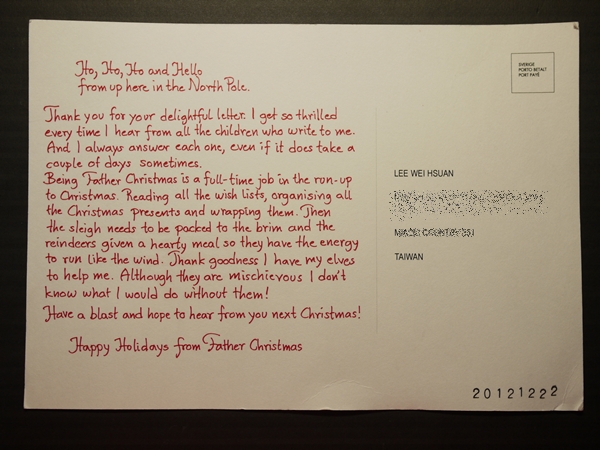 Ho, Ho, Ho and Hello
from up here in the North Pole.
Thank you for your delightful letter. I get so thrilled
every time I hear from all the children who write to me.
And I always answer each one, even if it does take a
couple of days sometimes.
Being Father Christmas is a full-time job in the run-up
to Christmas. Reading all the wish lists, organising all
the Christmas presents and wrapping them. Then
the sleigh needs to be packed to the brim and the
reindeers given a hearty meal so they have the energy
to run like the wind. Thank goodness I have my elves
to help me. Although they are mischievous I don't
know what I would do without them!
Have a blast and hope to hear from you next Christmas!
Happy Holidays from Father Christmas
SVERIGE
PORTO BETALT
PORT PAYÉ
LEE WEI HSUAN
TAIWAN
20121222